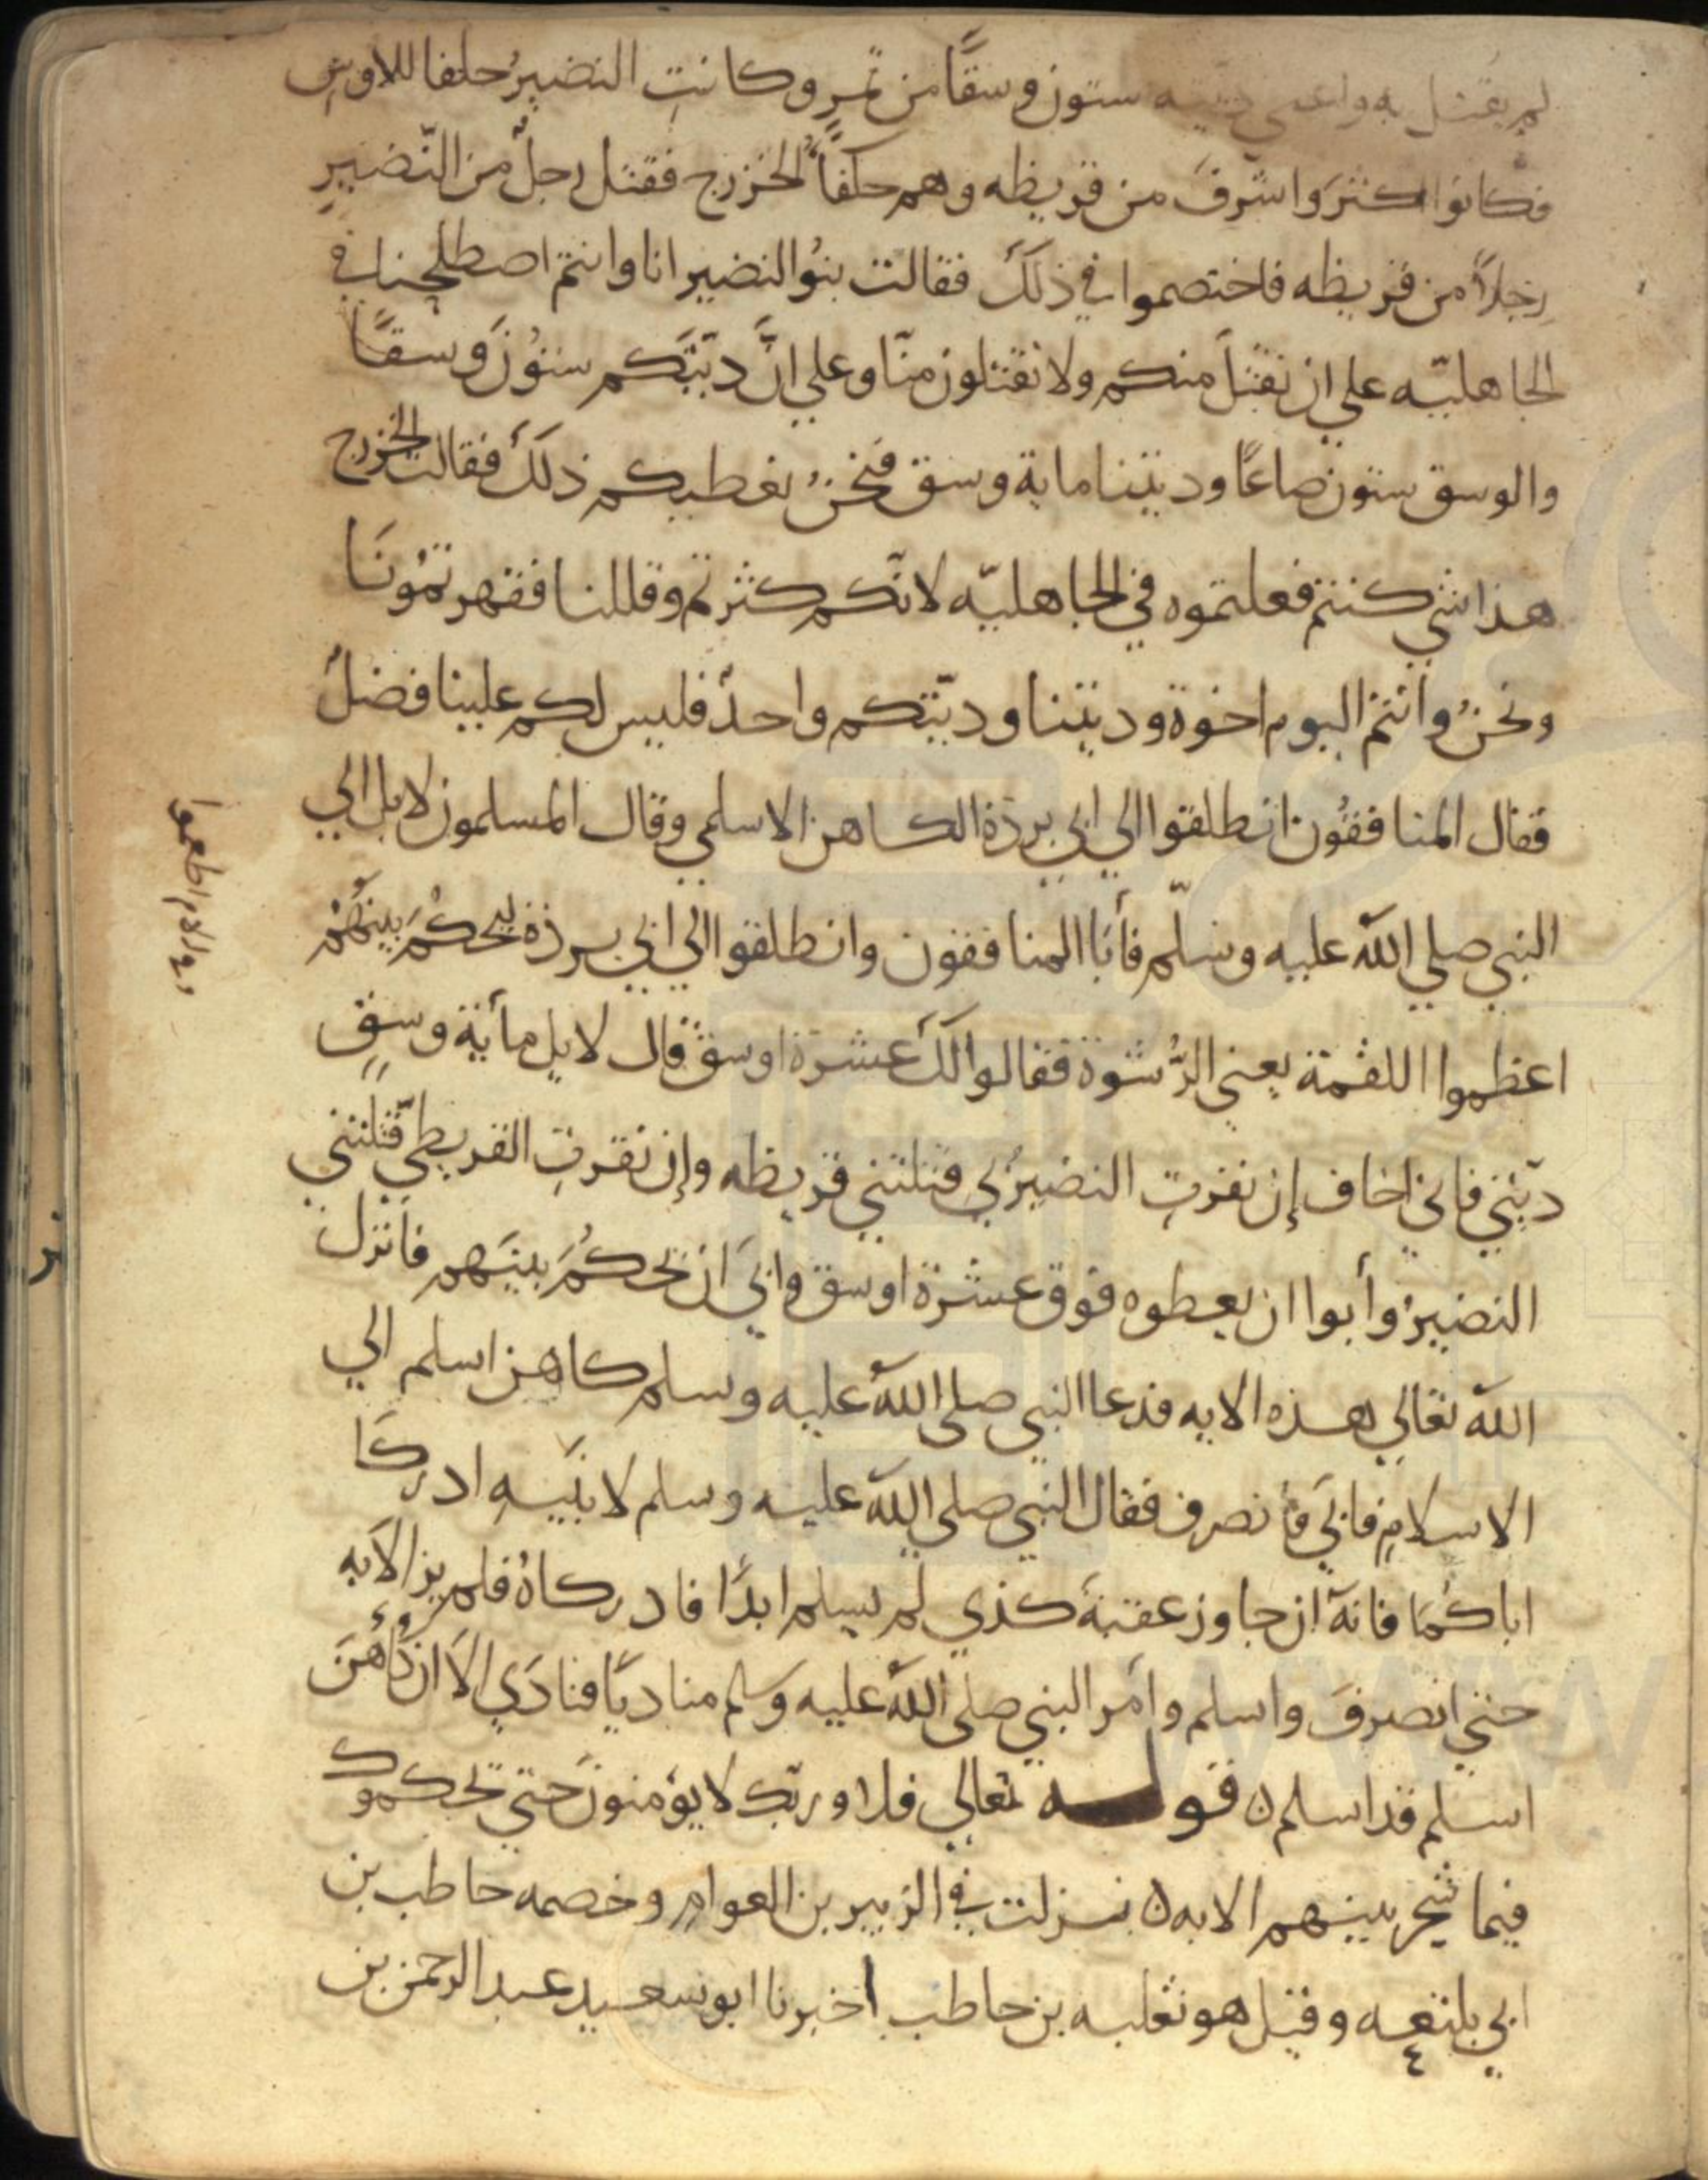 لم يقتل به واعطي ديته ستون وسقًا من تمرٍ وكانتِ النضيرُ حلفا للاوسِ
فكانوا اكثرَ واشرفَ من قريظه وهم حلفاءُ الخزرج فقتل رجلٌ من النّضيرِ
رجلاً من قريظه فاختصموا في ذلكَ فقالت بنُو النضير انا وانتم اصطلحنا في
الجاهليّه علي ان نقتلَ منكم ولا تقتلون منّا وعلي انَّ ديّتَكم ستوُنَ وَسقًا
والوسق ستون صاعًا وديتنا ماية وسق فنحنُ نعطيكم ذلكَ فقالت الخزرج
هذا شي كنتم فعلتموه في الجاهليّه لانّكم كثرتم وقللنا فقهرتمُونَا
ونحنُ وانتمْ اليوم اخوة وديننا ودينكم واحدٌ فليس لكم علينا فضلٌ
فقال المنافقُون انطلقوا الي ابي بردة الكاهن الاسلمي وقال المسلمون لا بل الي
النبي صلي اللّه عليه وسلّم فأبَا المنافقون وانطلقوا الي ابي بردة ليحكُمَ بينهُمْ
اعظموا اللقمة يعني الرُّشوة فقالوا لكَ عشرة اوسق قال لا بل مأية وسقٍ
ديّتي فاني اخاف إن نفرتِ النضيرُي قتلتني قريظه وإن نفرتِ القريظيّ قتلتني
النضيرُ وأبوا ان يعطوه فوق عشرة اوسق وابيَ ان يحكُمَ بينَهم فانزل
اللّه تعَالي هذه الايه فدعا النبي صلي اللّهُ عليه وسلم كاهن اسلم الي
الاسلامِ فابيَ فأنصرف فقال النبي صلي اللّه عليه وسلم لابنَيهِ ادركَا
اباكُمَا فانهَ ان جاوز عقبةَ كذي لم يسلم ابدًا فادركاهُ فلم يزالا به
حتي انصرفَ واسلم وامَر النبي صلي اللّهُ عليه وسلم مناديًا فنادَي الاَ ان كاهنَ
اسلم قد اسلم ن قولـــه تعالي فلا وربّك لا يؤمنونَ حتي تحكموك
فيما شجر بينهم الايه ن نزلت في الزبير بن العوامِ وخصمه حاطب بن
ابي بلتعه وقيل هو ثعلبه بن حاطب اخبرنا ابو سعيد عبد الرحمن بن